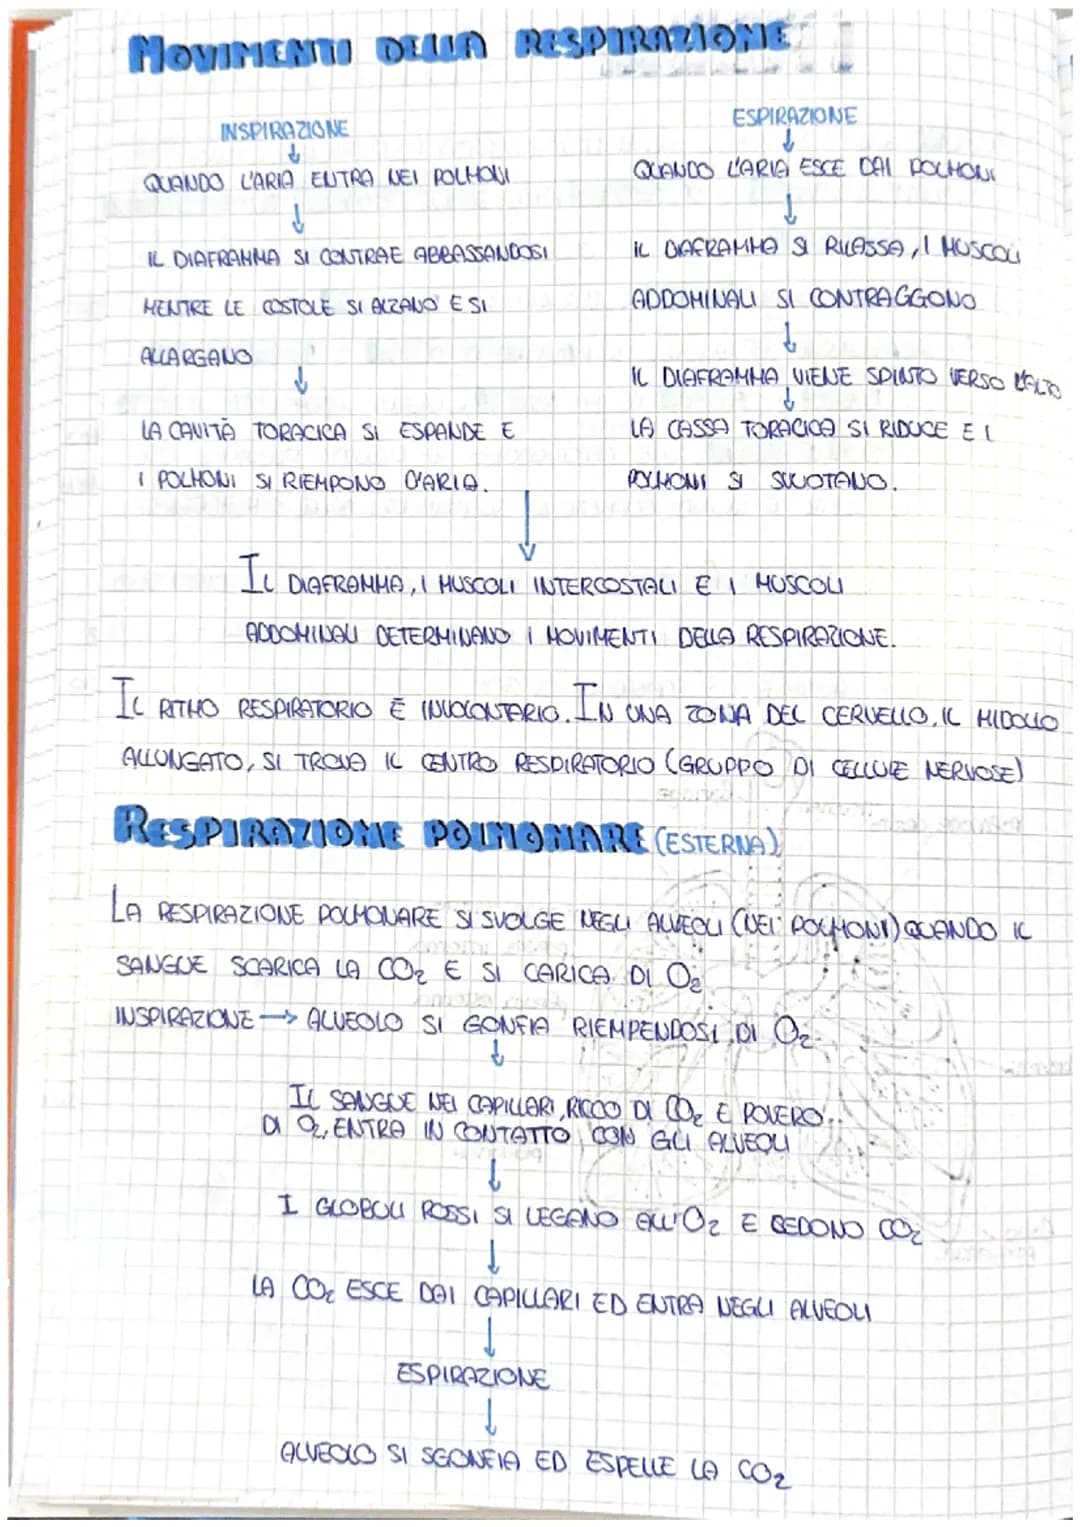 MOVIMENTI DELLA RESPIRAZIONE
INSPIRAZIONE
QUANDO L'ARIA ENTRA NEI POLMONI
IL DIAFRAMMA SI CONTRAE ABBASSANDOSI
MENTRE LE COSTOLE SI ALZANO E SI
ALLARGANO
LA CAVITÀ TORACICA SI ESPANDE E
I POLMONI SI RIEMPONO D'ARIA.
ESPIRAZIONE
QUANDO L'ARIA ESCE DAI POLMONI
IL DIAFRAMMA SI RILASSA, I MUSCOLI
ADDOMINALI SI CONTRAGGONO
IL DIAFRAMMA VIENE SPINTO VERSO L'ALTO
LA CASSA TORACICA SI RIDUCE E I
POLMONI SI SVUOTANO.
IL DIAFRAMMA, I MUSCOLI INTERCOSTALI E I MUSCOLI
ADDOMINALI DETERMINANO I MOVIMENTI DELLA RESPIRAZIONE.
IL RITMO RESPIRATORIO È INVOLONTARIO. IN UNA ZONA DEL CERVELLO, IL MIDOLLO
ALLUNGATO, SI TROVA IL CENTRO RESPIRATORIO (GRUPPO DI CELLULE NERVOSE)
RESPIRAZIONE POLMONARE (ESTERNA)
LA RESPIRAZIONE POLMONARE SI SVOLGE NEGLI ALVEOLI (NEI POLMONI) QUANDO IL
SANGUE SCARICA LA CO₂ E SI CARICA DI O₂
INSPIRAZIONE → ALVEOLO SI GONFIA RIEMPENDOSI DI O₂
IL SANGUE NEI CAPILLARI, RICCO DI CO₂ E POVERO
DI O₂, ENTRA IN CONTATTO CON GLI ALVEOLI
I GLOBULI ROSSI SI LEGANO ALL'O₂ E CEDONO CO₂
LA CO₂ ESCE DAI CAPILLARI ED ENTRA NEGLI ALVEOLI
ESPIRAZIONE
ALVEOLO SI SGONFIA ED ESPELLE LA CO₂